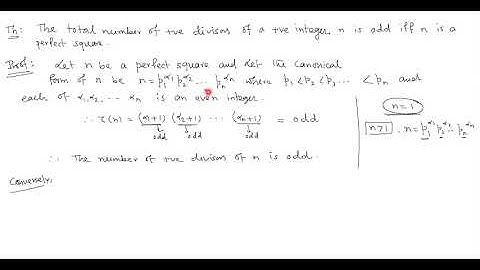 Th: The total number of +ve divisors of a +ve integer n is odd iff n is a
perfect square.
Proof: Let n be a perfect square and let the canonical
form of n be n = p₁^α₁ p₂^α₂ ... pₙ^αₙ where p₁ < p₂ < p₃ ... < pₙ and
each of α₁, α₂, ... αₙ is an even integer.
∴ τ(n) = (α₁+1) (α₂+1) ... (αₙ+1) = odd
odd odd odd
∴ The number of +ve divisors of n is odd.
Conversely,
n = 1
n > 1, n = p₁^α₁ p₂^α₂ ... pₙ^αₙ